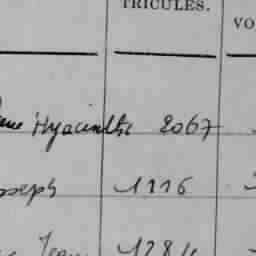 TRICULES.
VO
Hyacinthe 2067
Joseph 1116
Jean 1284